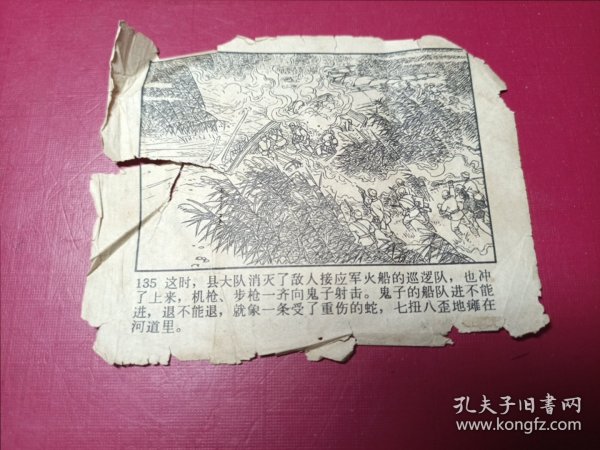 135 这时，县大队消灭了敌人接应军火船的巡逻队，也冲
了上来，机枪、步枪一齐向鬼子射击。鬼子的船队进不能
进，退不能退，就象一条受了重伤的蛇，七扭八歪地瘫在
河道里。
孔夫子旧书网
www.kongfz.com